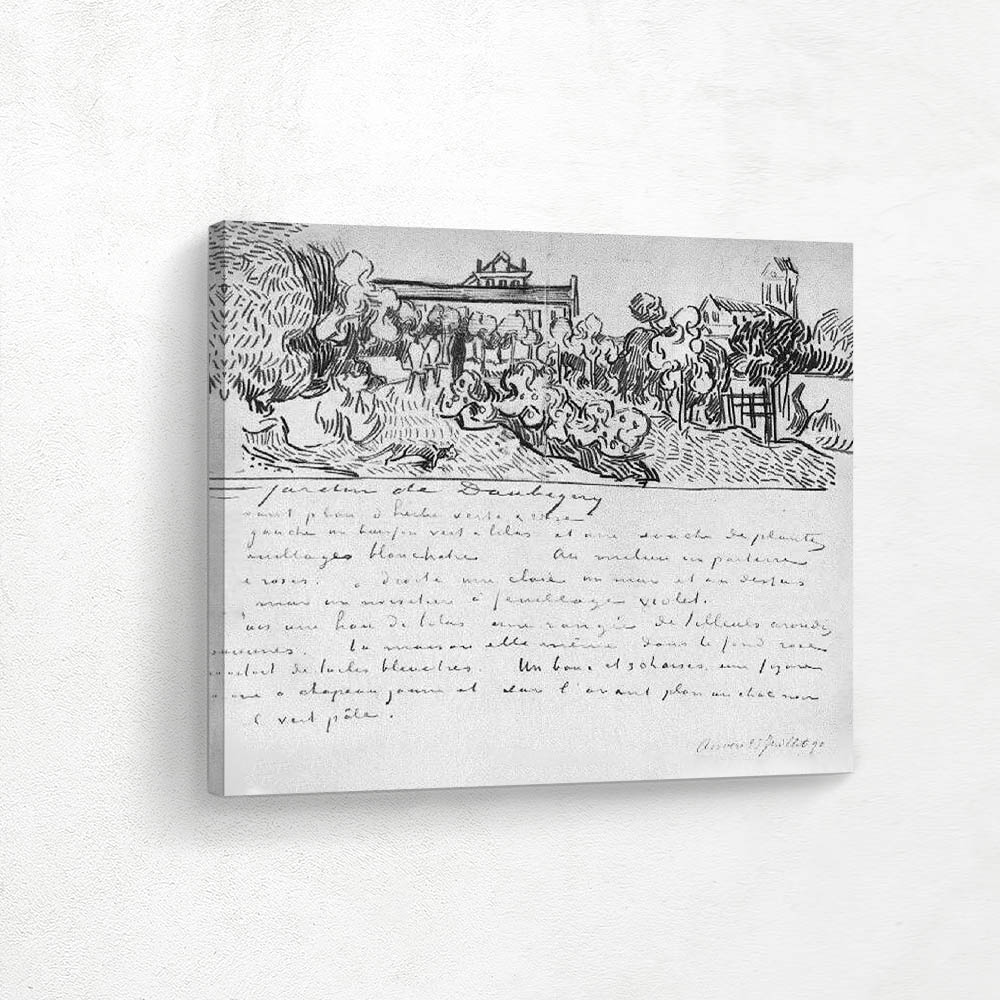 jardin de Daubigny
vant plan d'herbe verte & rose
gauche un buisson vert & lilas et une souche de plantes
euillages blanchatre Au milieu un parterre
e roses. a droite une claie un mur et au dessus
mur un noisetier à feuillage violet.
uis une haie de lilas une rangée de tilleuls arondis
aunes. La maison elle même dans le fond rose
toit de tuiles bleuatres. Un banc et 3 chaises, une figure
oire a chapeau jaune et sur l'avant plan un chat noir
l vert pâle.
Auvers 23 Juillet 90